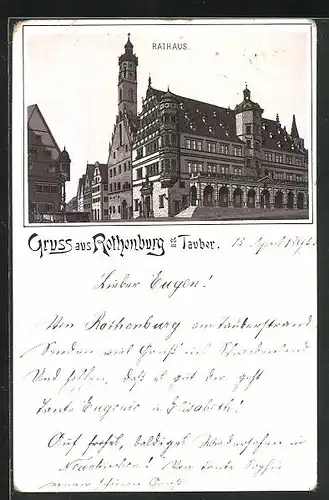 RATHAUS.
Gruss aus Rothenburg o/ Tauber. 15 April 189
Lieber Eugen!
Von Rothenburg am Tauberstrand
Senden viel Grüß in's Schwabenland
Und hoffen, daß es gut dir geht
Tante Eugenie u Elisabeth!
Auf frohes, baldiges Wiedersehen in
Von Tante Sophie
einen schönen Gruß